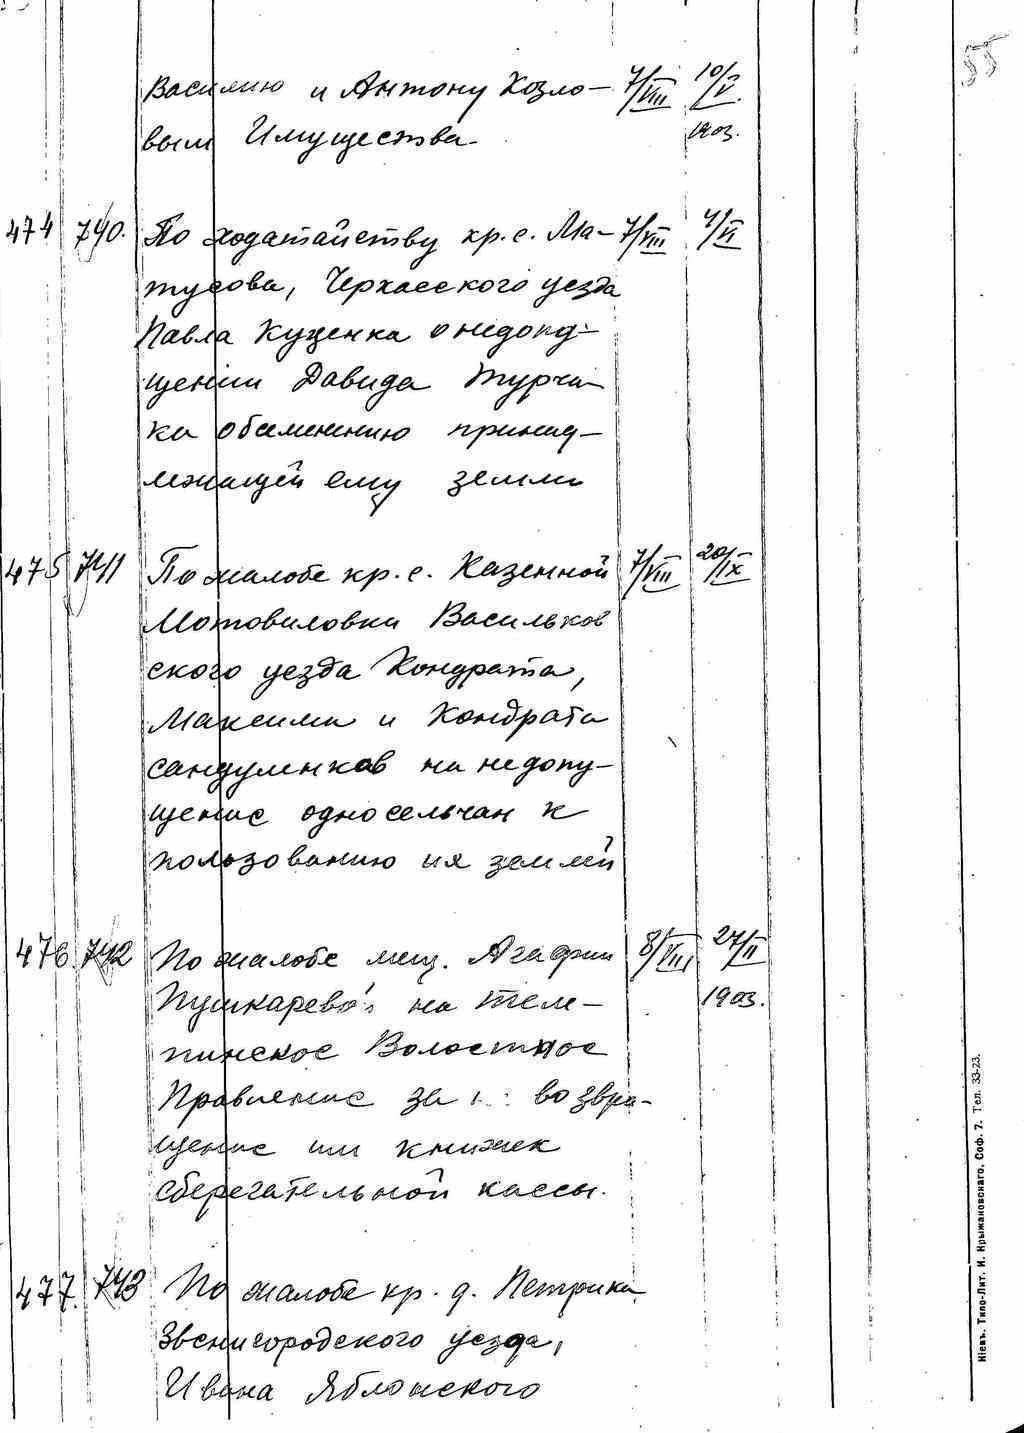 55
Василию и Антону Козло- 7/VIII 10/V
вым Имущества. 1903.
474 740. По ходатайству кр. с. Ма- 7/VIII 4/VI
тусова, Черкасского уезда
Павла Куценка о недопу-
щении Давида Турча-
ка обеменению принад-
лежащей ему земли
475 741 По жалобе кр. с. Казенной 7/VIII 20/IX
Мотовиловки Васильков
ского уезда Кондрата,
Максима и Кондрата
Сандуленков на недопу-
щение односельчан к
пользованию их землей
476 742 По жалобе мещ. Агафии 8/VIII 27/II
Пушкаревой на Теле- 1903.
пинское Волостное
Правление за возвра-
щение им книжек
сберегательной кассы.
477. 743 По жалобе кр. д. Петрики
Звенигородского уезда,
Ивана Яблонского
Кіевъ. Типо-Лит. И. Крыжановскаго. Соф. 7. Тел. 33-23.